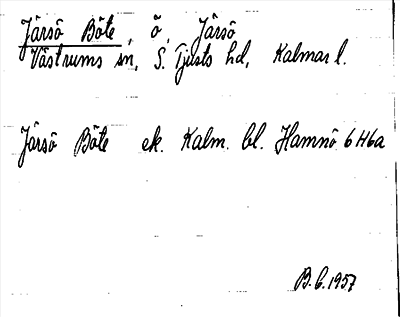 Järsö Båte, ö, Järsö
Västrums sn, S. Tjusts hd, Kalmar l.
Järsö Båte ek. Kalm. bl. Hamnö 6H6a
B.G.1957